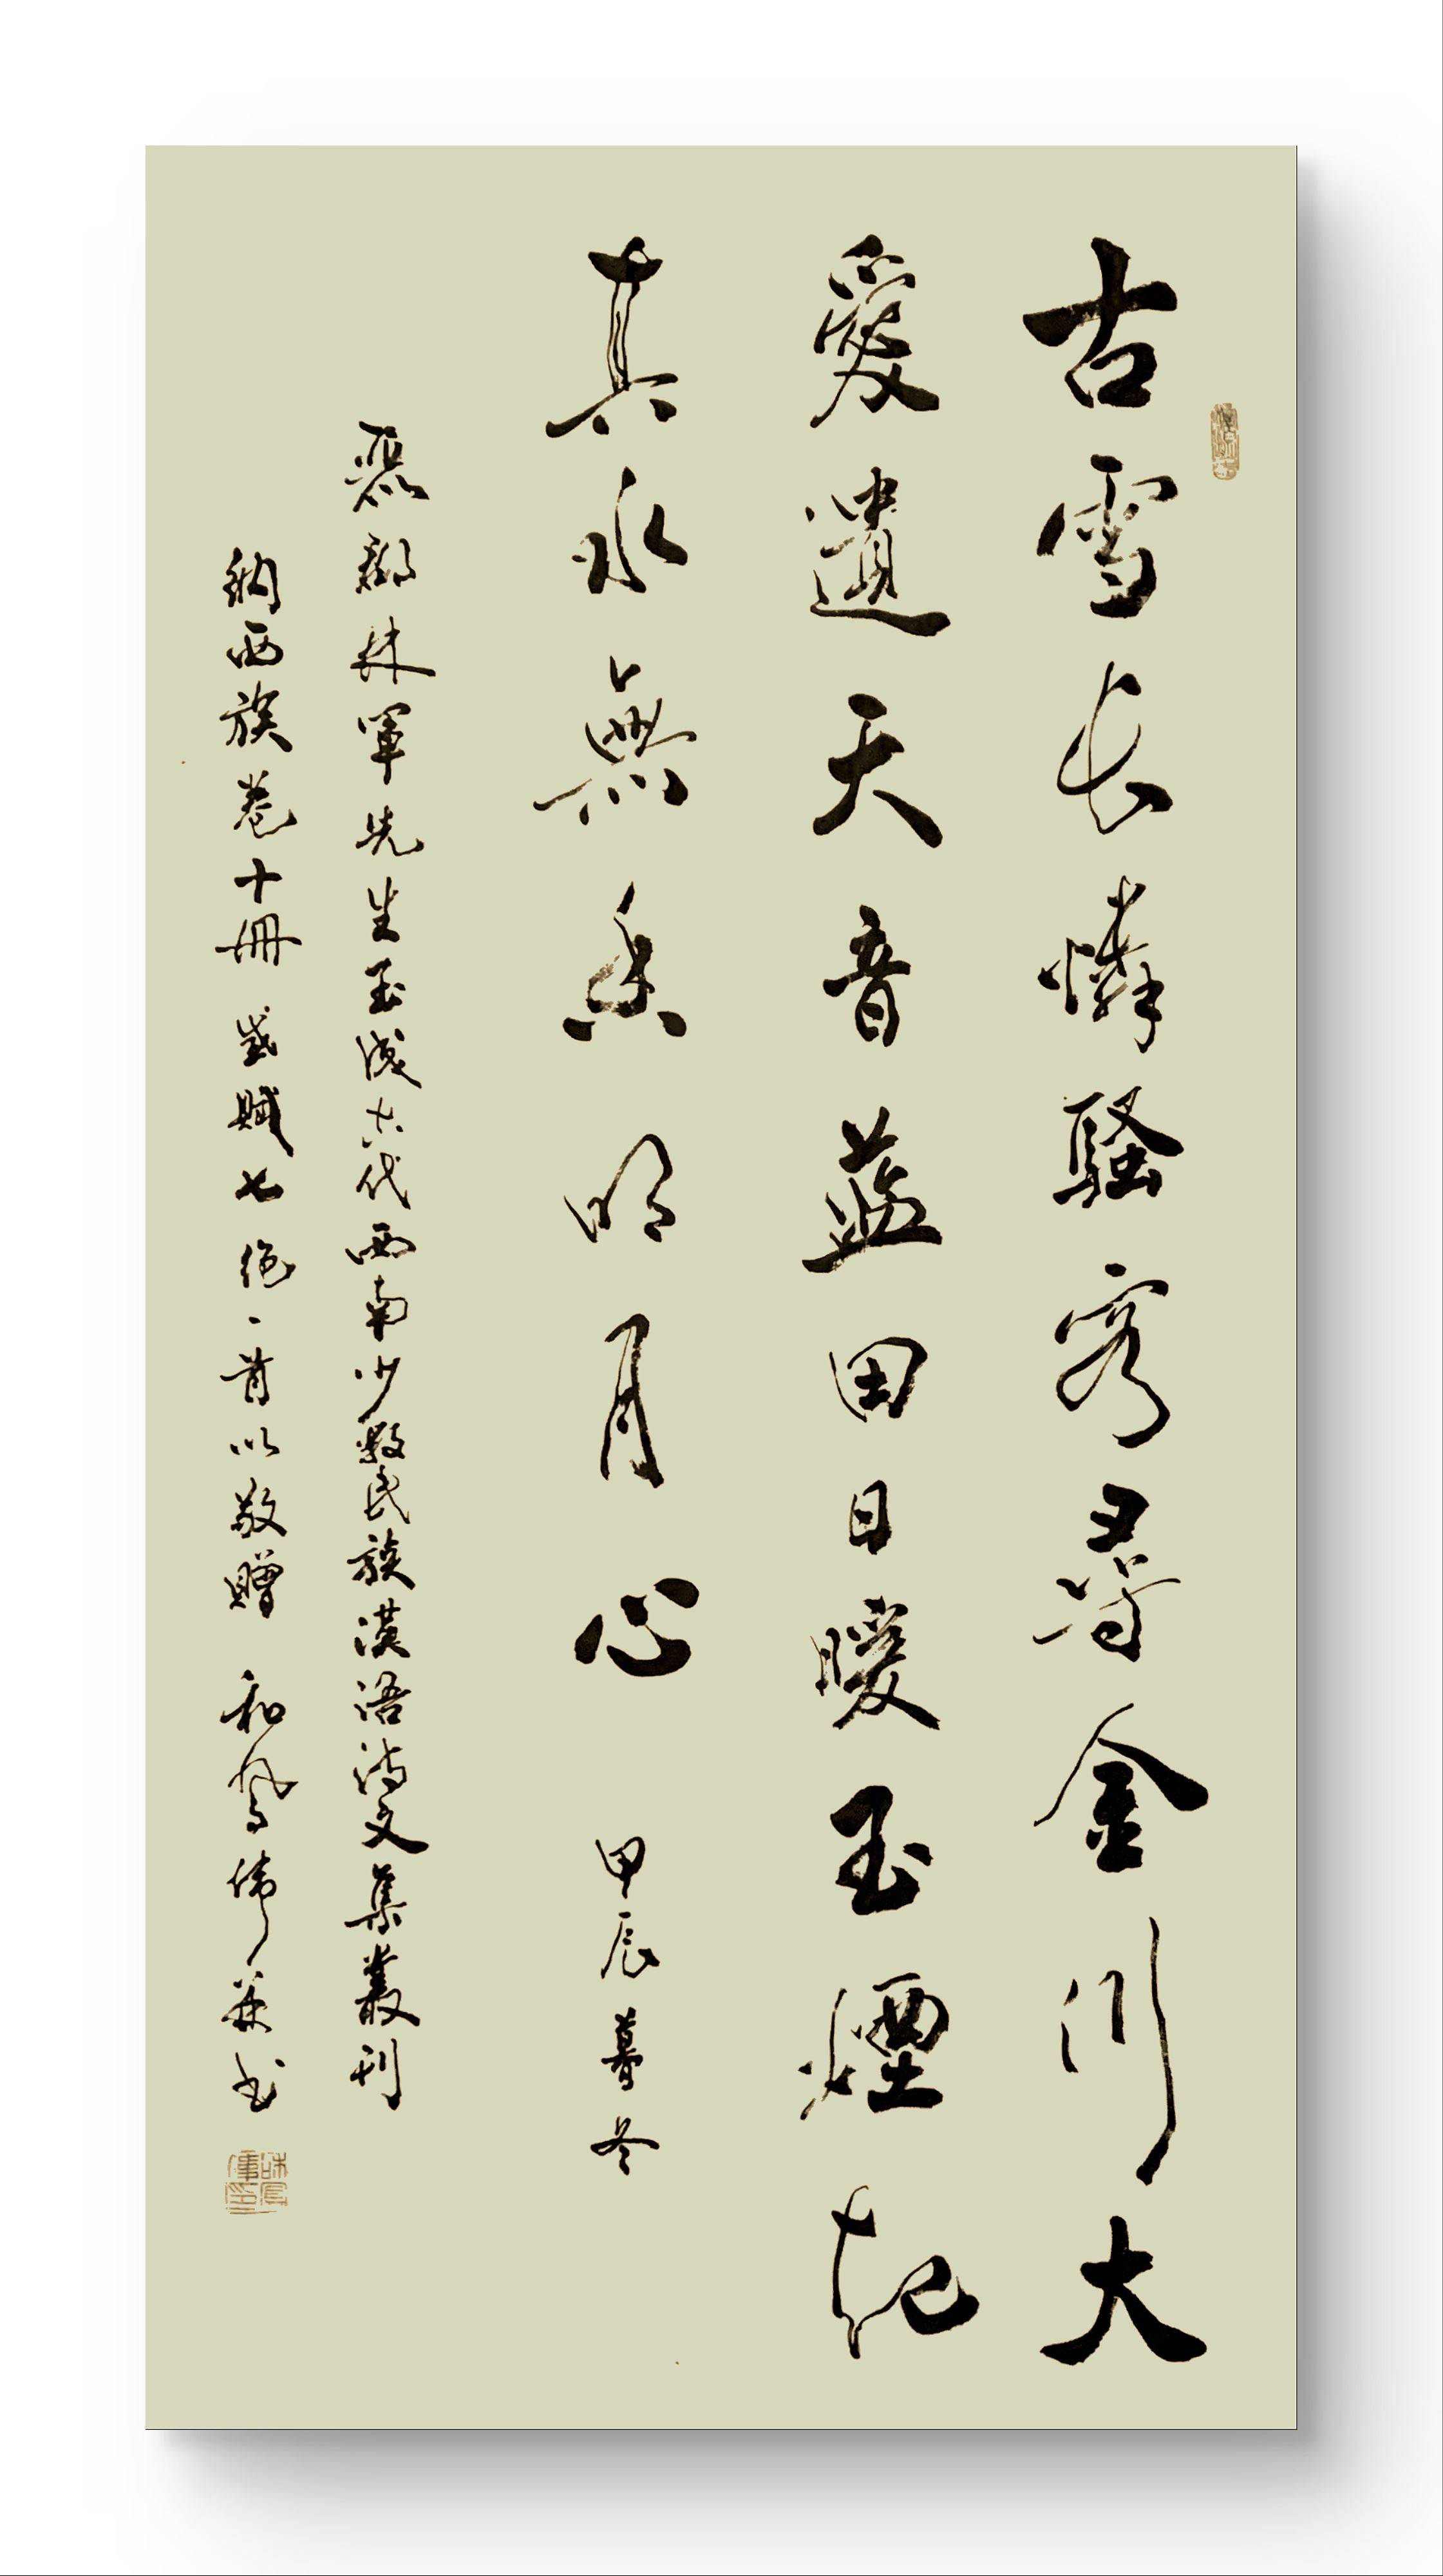 古雪長憐騷客尋金川大
愛遺天音藍田日暖玉煙起
真水無香明月心 甲辰暮冬
麗郡林軍先生玉成古代西南少數民族漢語詩文集叢刊
納西族卷十冊 感賦七絕一首以敬贈 和鳳偉並書
和鳳偉印